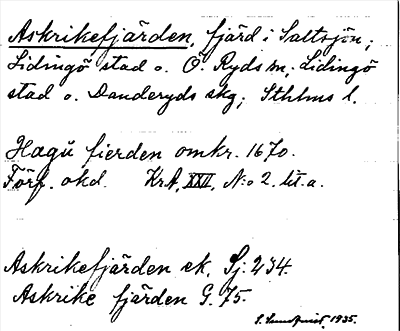 Askrikefjärden, fjärd i Saltsjön;
Lidingö stad o. Ö. Ryds sn; Lidingö
stad o. Danderyds skg; Sthlms l.
Hægü fierden omkr. 1670.
Förf. okd. KrA, XXII, N:o 2. lit. a.
Askrikefjärden ek. Sj. 234.
Askrike fjärden G. 75.
S. 1935.